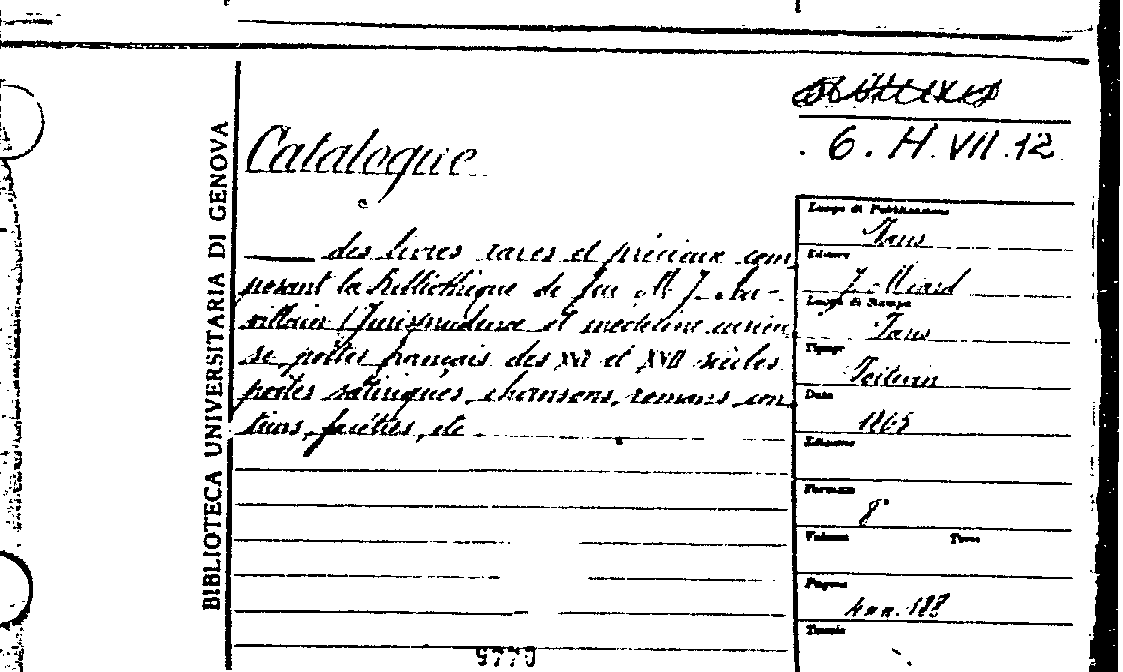 BIBLIOTECA UNIVERSITARIA DI GENOVA
6. H. VII. 12
Catalogue
des livres rares et précieux com
posant la bibliothèque de feu M. J.
Jurisprudence et médecine curieu
se, poètes français des XVI et XVII siècles
poètes satiriques, chansons, romans, con
teurs, facéties, etc
Luogo di Pubblicazione
Paris
Editore
Luogo di Stampa
Paris
Tipogr
Data
1865
Edizione
Formato
8°
Volume Tomo
Pagine
187
9770